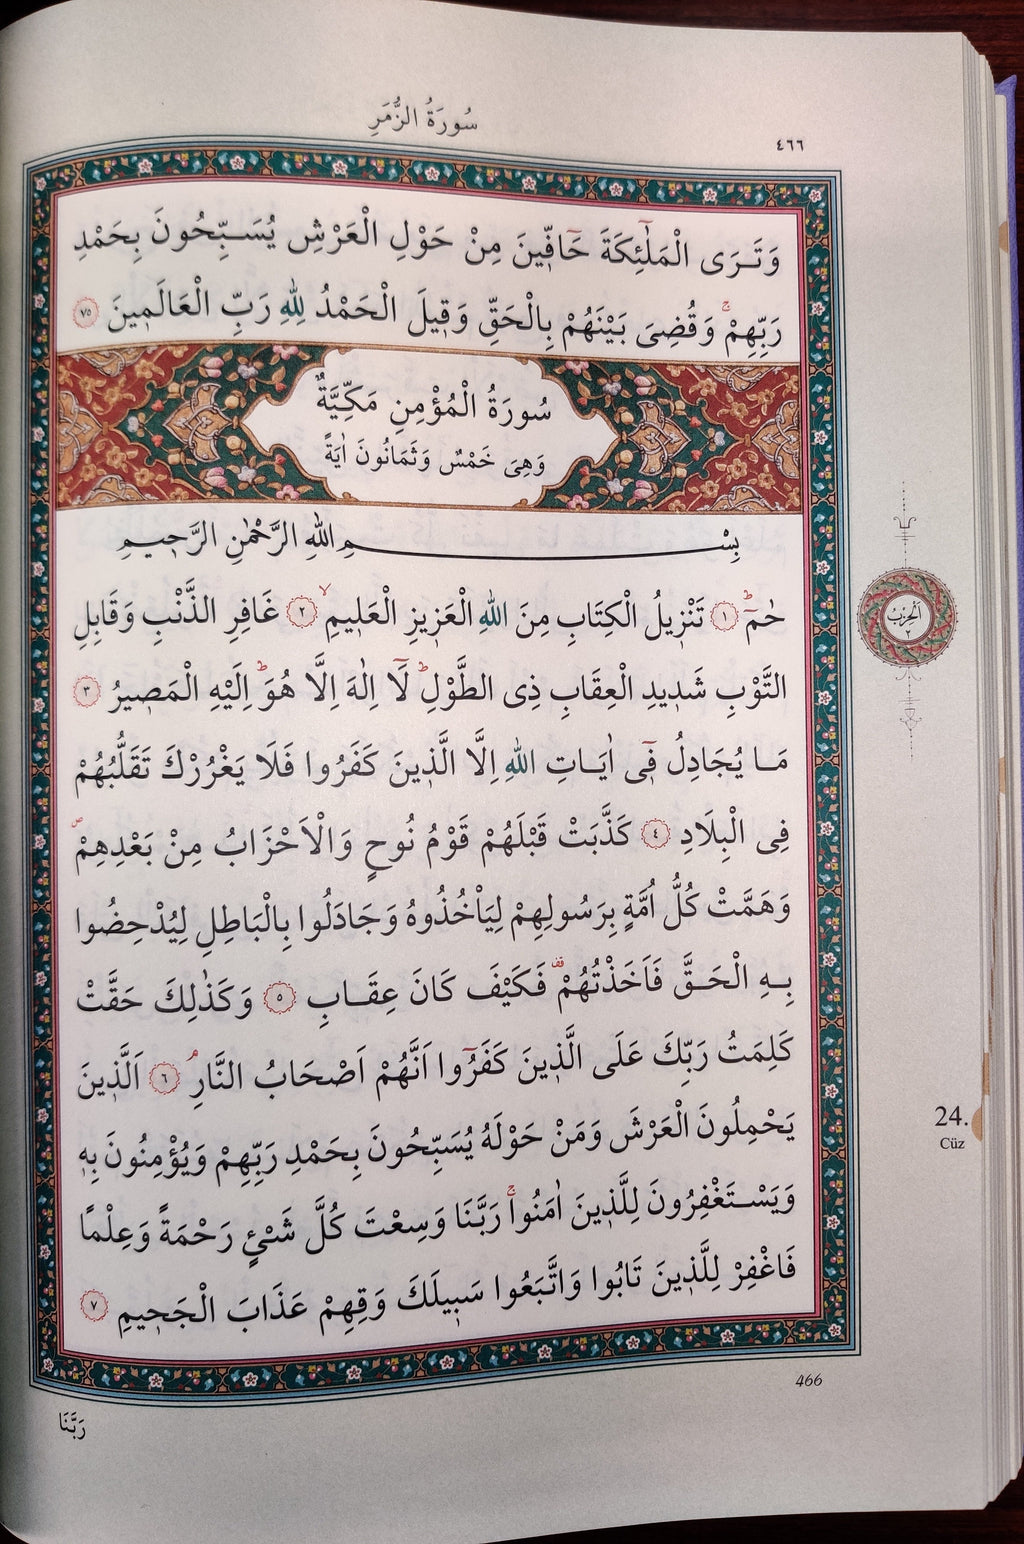 سُورَةُ الزُّمَرِ
٤٦٦
وَتَرَى الْمَلٰٓئِكَةَ حَٓافّٖينَ مِنْ حَوْلِ الْعَرْشِ يُسَبِّحُونَ بِحَمْدِ
رَبِّهِمْۚ وَقُضِىَ بَيْنَهُمْ بِالْحَقِّ وَقٖيلَ الْحَمْدُ لِلّٰهِ رَبِّ الْعَالَمٖينَ ٧٥
سُورَةُ الْمُؤْمِنِ مَكِّيَّةٌ
وَهِىَ خَمْسٌ وَثَمَانُونَ اٰيَةً
بِسْمِ اللّٰهِ الرَّحْمٰنِ الرَّحٖيمِ
حٰمٓۜ ١ تَنْزٖيلُ الْكِتَابِ مِنَ اللّٰهِ الْعَزٖيزِ الْعَلٖيمِۙ ٢ غَافِرِ الذَّنْبِ وَقَابِلِ
التَّوْبِ شَدٖيدِ الْعِقَابِ ذِى الطَّوْلِۜ لَٓا اِلٰهَ اِلَّا هُوَۜ اِلَيْهِ الْمَصٖيرُ ٣
مَا يُجَادِلُ فٖٓى اٰيَاتِ اللّٰهِ اِلَّا الَّذٖينَ كَفَرُوا فَلَا يَغْرُرْكَ تَقَلُّبُهُمْ
فِى الْبِلَادِ ٤ كَذَّبَتْ قَبْلَهُمْ قَوْمُ نُوحٍ وَالْاَحْزَابُ مِنْ بَعْدِهِمْۖ
وَهَمَّتْ كُلُّ اُمَّةٍ بِرَسُولِهِمْ لِيَاْخُذُوهُ وَجَادَلُوا بِالْبَاطِلِ لِيُدْحِضُوا
بِهِ الْحَقَّ فَاَخَذْتُهُمْ۠ فَكَيْفَ كَانَ عِقَابِ ٥ وَكَذٰلِكَ حَقَّتْ
كَلِمَتُ رَبِّكَ عَلَى الَّذٖينَ كَفَرُٓوا اَنَّهُمْ اَصْحَابُ النَّارِۢ ٦ اَلَّذٖينَ
يَحْمِلُونَ الْعَرْشَ وَمَنْ حَوْلَهُ يُسَبِّحُونَ بِحَمْدِ رَبِّهِمْ وَيُؤْمِنُونَ بِهٖ
وَيَسْتَغْفِرُونَ لِلَّذٖينَ اٰمَنُواۚ رَبَّنَا وَسِعْتَ كُلَّ شَىْءٍ رَحْمَةً وَعِلْمًا
فَاغْفِرْ لِلَّذٖينَ تَابُوا وَاتَّبَعُوا سَبٖيلَكَ وَقِهِمْ عَذَابَ الْجَحٖيمِ ٧
اَلْحِزْبُ
٢
24.
Cüz
466
رَبَّنَا